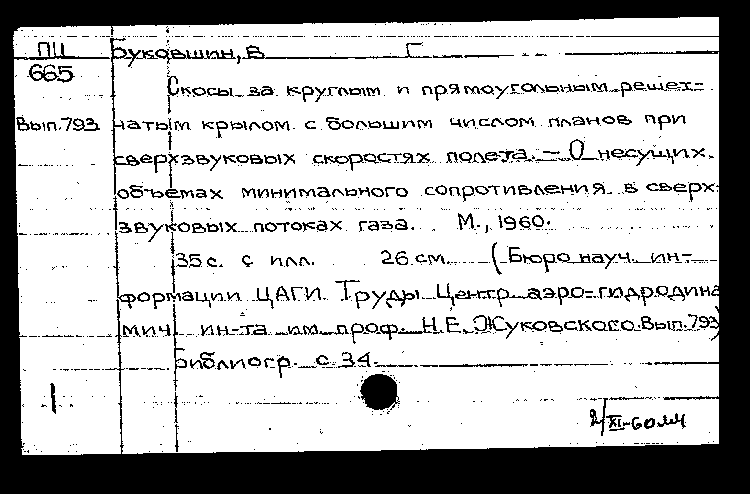 ПЦ Буковшин, В Г
665
Скосы за круглым и прямоугольным решет-
Вып.793 чатым крылом с большим числом планов при
сверхзвуковых скоростях полета. – О несущих
объемах минимального сопротивления в сверх-
звуковых потоках газа. М., 1960.
35 с. с илл. 26 см. (Бюро науч. ин-
формации ЦАГИ. Труды Центр. аэро-гидродина
мич. ин-та им. проф. Н.Е. Жуковского. Вып.793)
Библиогр. с 34.
2/XI-60